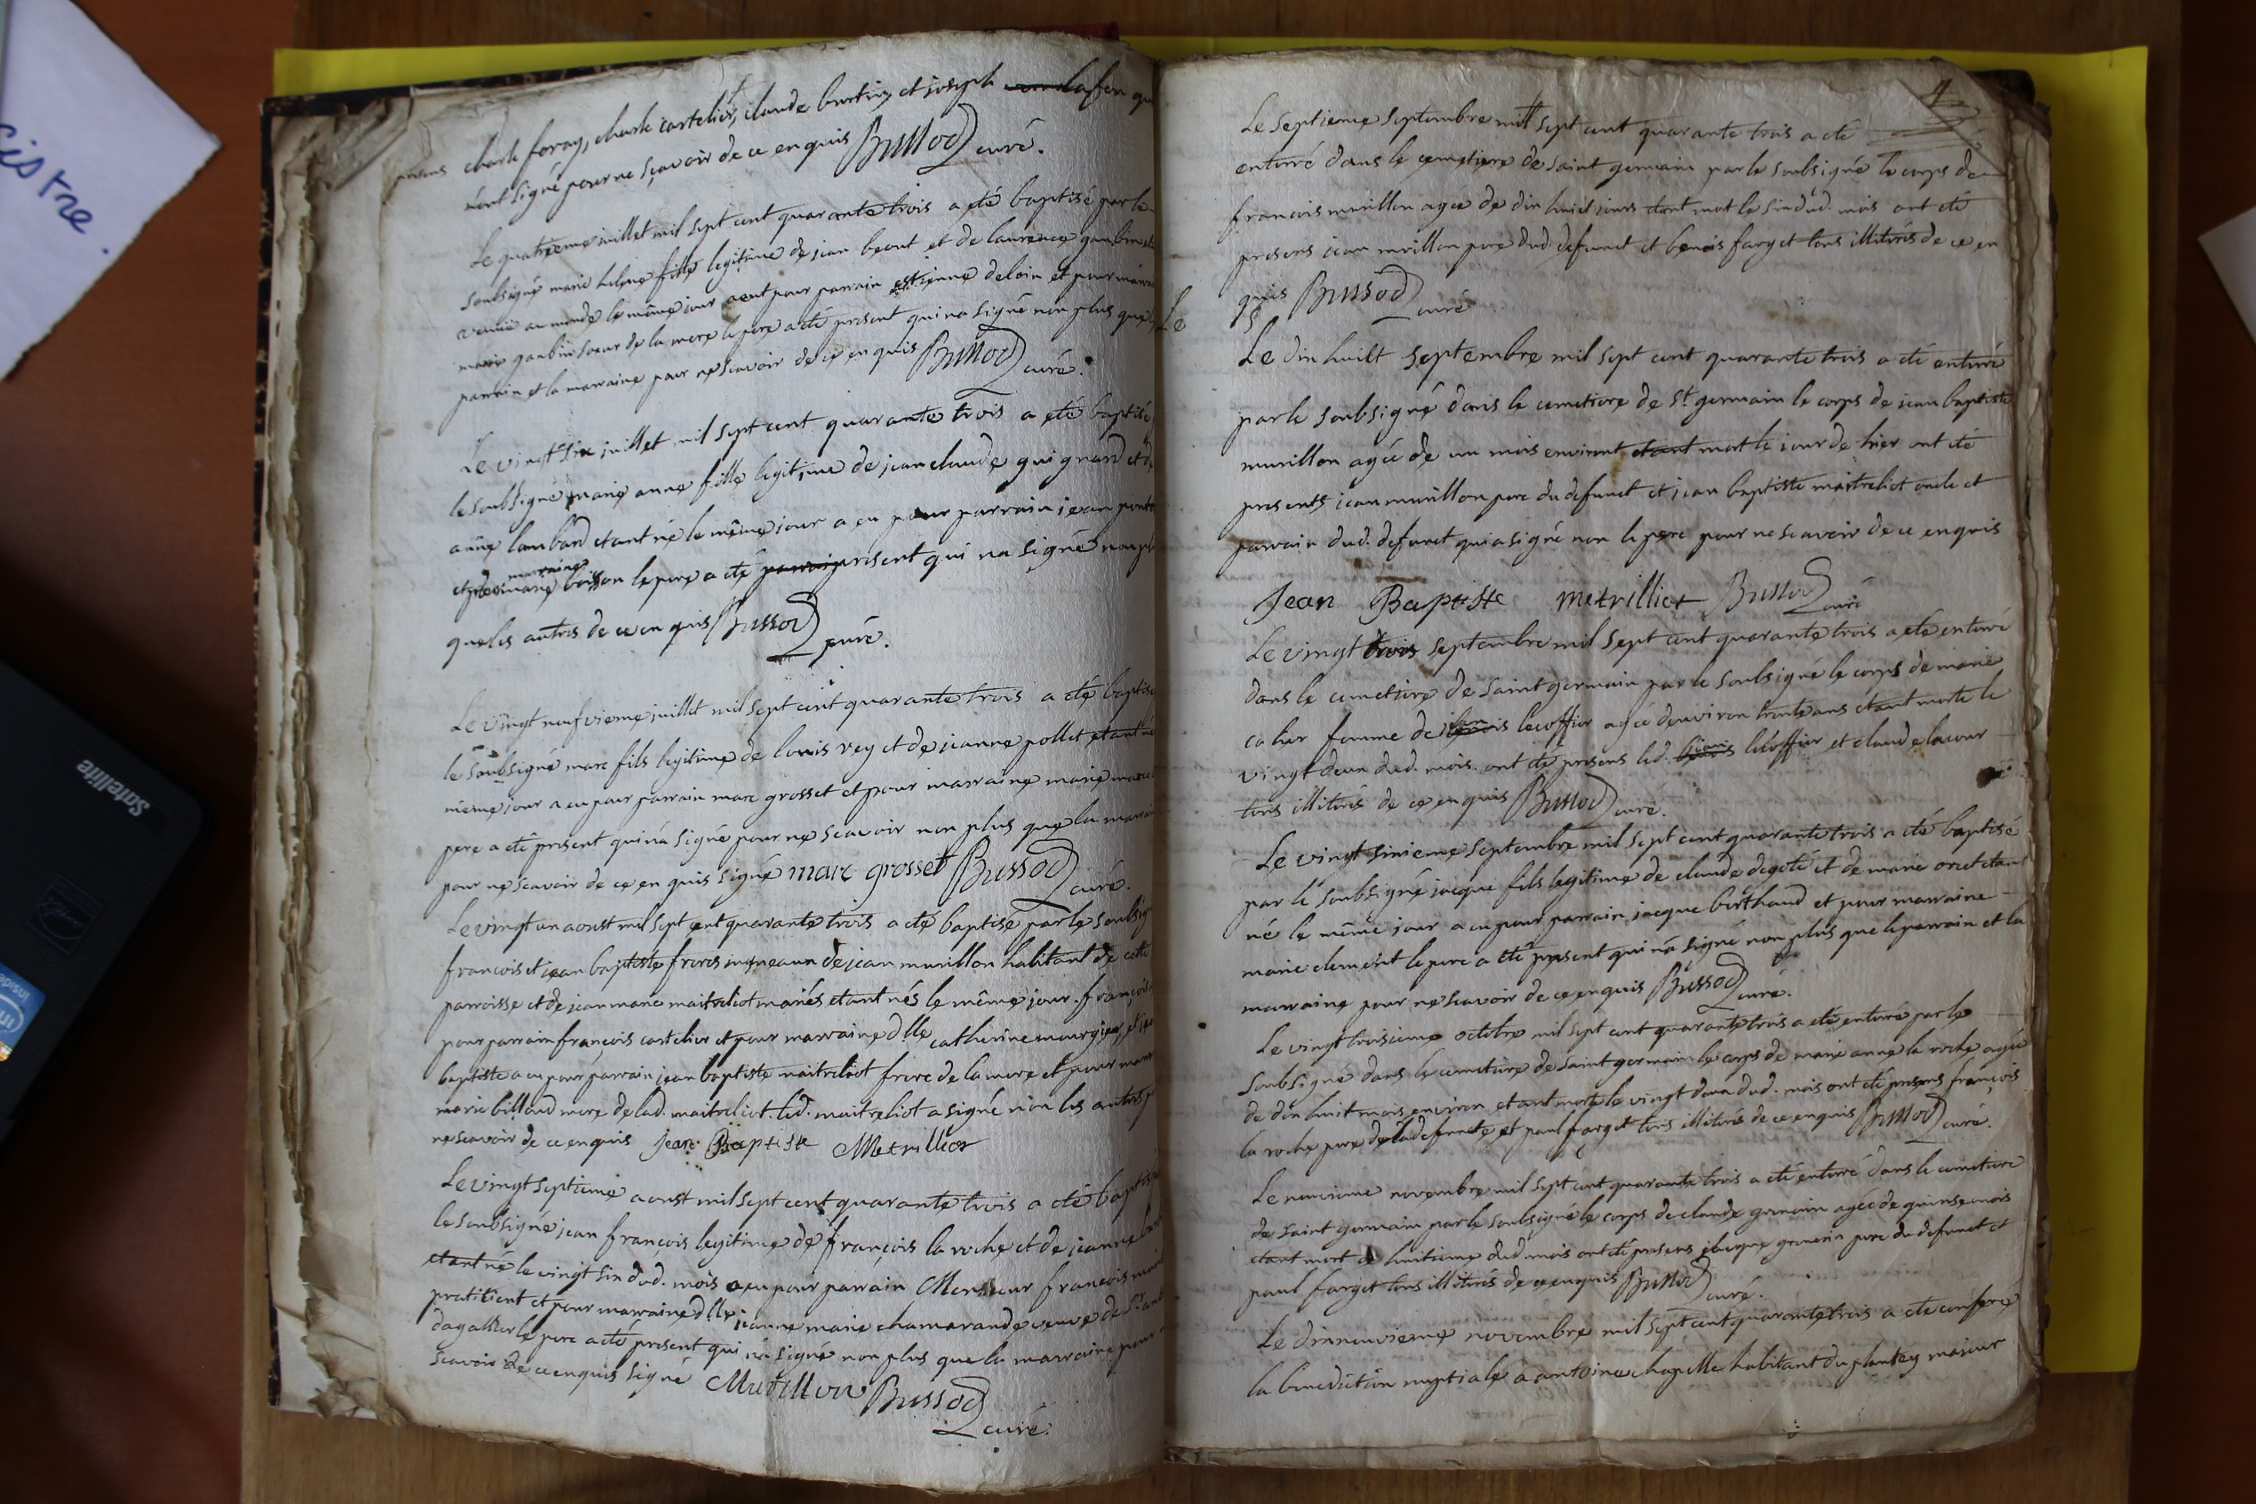 presens charle foray, charle cartelier, claude et joseph lafon qui
n'ont signé pour ne sçavoir de ce enquis Bussod curé.
Le quatrieme juillet mil sept cent quarante trois a eté baptisé par le
soubsigné marie helene fille legitime de jean beout et de laurence gaubin
venue au monde le même jour aent pour parrain estienne deloin et pour
marie gaubin soeur de la mere le pere a eté present qui na signé non plus que le
parrain et la marraine pour ne scavoir de ce enquis Bussod curé.
Le vingt six juillet mil sept cent quarante trois a eté baptisé
le soubsigné marie anne fille legitime de jean claude guignard et
anne lambard etant né le même jour a eu pour parrain jean
marraine
et marie boisson le pere a eté present qui na signé non
que les autres de ce enquis Bussod curé.
Le vingt neufvieme juillet mil sept cent quarante trois a eté baptisé
le soubsigné marc fils legitime de louis rey et de jeanne pollet etant né
même jour a eu pour parrain marc grosset et pour marraine marie
pere a eté present qui na signé pour ne scavoir non plus que la
pour ne scavoir de ce enquis signé marc grosset Bussod curé.
Le vingt un aoust mil sept cent quarante trois a eté baptisé par le
francois et jean baptiste freres jumeaux de jean murillon habitant de cette
parroisse et de jean marie maitreliot mariés etant nés le même jour. françois
pour parrain françois cartelier et pour marraine dlle catherine
baptiste a eu pour parrain jean baptiste maitreliot frere de la mere et pour
marie billoud mere de lad. maitreliot. led. maitreliot a signé non les autres
ne scavoir de ce enquis Jean Baptiste Metrilliot
Le vingt septieme aoust mil sept cent quarante trois a eté baptisé
le soubsigné jean françois legitime de françois la roche et de jeanne
etant né le vingt six dud. mois a eu pour parrain Monsieur francois
pratitient et pour marraine dlle jeanne marie chamarande veuve de
dagallier le pere a eté present qui na signé non plus que la marraine pour
scavoir de ce enquis signé Murillon Bussod
curé.
Le septieme septembre mil sept cent quarante trois a eté
enterré dans le cemetiere de saint germain par le soubsigné le corps de
francois murillon agée de dix huict jours etant mort le six dud. mois ont eté
presens jean murillon pere dud. defunct et benois farget tous illiterés de ce en
quis Bussod curé
Le
Le dix huict septembre mil sept cent quarante trois a eté enterré
par le soubsigné dans le cemetiere de St. germain le corps de jean baptiste
murillon agée de un mois environt etant mort le jour de hier ont eté
presents jean murillon pere du defunct et jean baptiste maitreliot oncle et
parrain dud. defunct qui a signé non le pere pour ne scavoir de ce enquis
Jean Baptiste metrilliot Bussod curé
Le vingt trois septembre mil sept cent quarante trois a eté enterré
dans le cemetiere de saint germain par le soubsigné le corps de marie
femme de jean lecoffier agée denviron trente ans etant morte le
vingt deux dud. mois. ont eté presens led. jean lecoffier et claude lacour
tous illiterés de ce enquis Bussod curé.
Le vingt sixieme septembre mil sept cent quarante trois a eté baptisé
par le soubsigné jacque fils legitime de claude degoté et de marie oret etant
né le même jour a eu pour parrain jacque berthaud et pour marraine
marie clement le pere a eté present qui na signé non plus que le parrain et la
marraine pour ne scavoir de ce enquis Bussod curé.
Le vingt troisieme octobre mil sept cent quarante trois a eté enterré par le
soubsigné dans le cemetiere de saint germain le corps de marie anne la roche agée
de dix huit mois environ etant morte le vingt deux dud. mois ont eté presens françois
la roche pere de lad. defuncte et paul farget tous illiterés de ce enquis Bussod curé.
Le neuvieme novembre mil sept cent quarante trois a eté enterré dans le cemetiere
de saint germain par le soubsigné le corps de claude agée de quinse mois
etant mort le huitieme dud. mois ont eté presens jacque pere du defunct et
paul farget tous illiterés de ce enquis Bussod curé.
Le dixneuvieme novembre mil sept cent quarante trois a eté conferé
la benediction nuptiale a antoine chapelle habitant du plantey majeur
Satellite